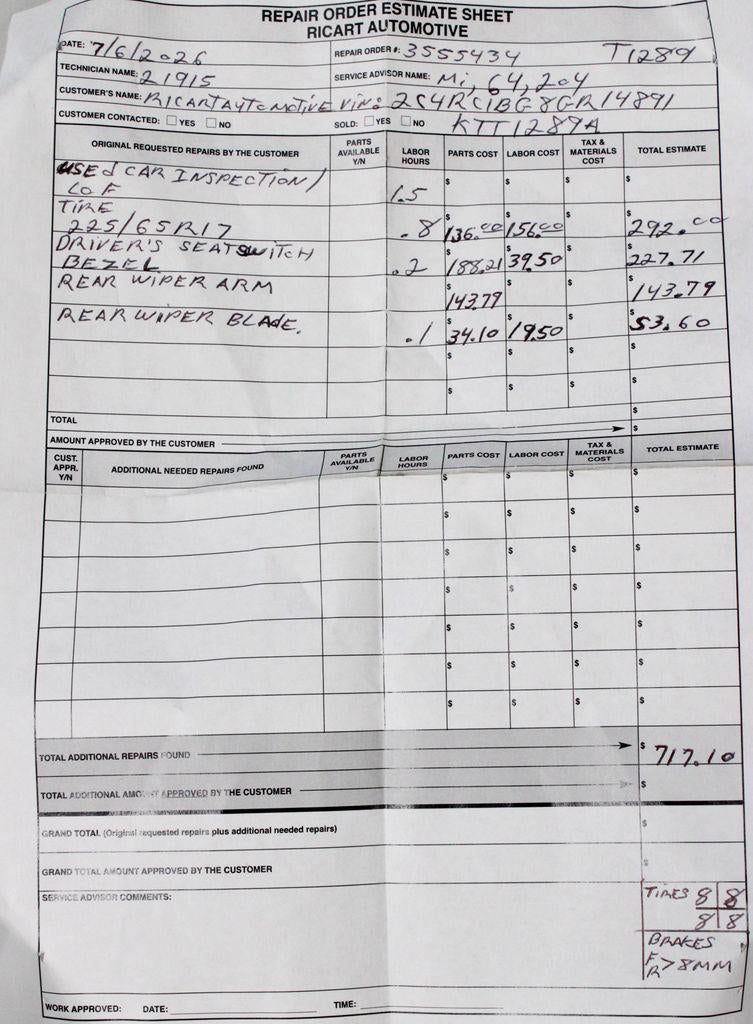 REPAIR ORDER ESTIMATE SHEET
RICART AUTOMOTIVE
DATE: 7/6/2026 REPAIR ORDER #: 3555434 T1289
TECHNICIAN NAME: 21915 SERVICE ADVISOR NAME: Mi, 64,204
CUSTOMER'S NAME: RICART AUTOMOTIVE VIN: 2C4RC1BG8GR14891
CUSTOMER CONTACTED: YES NO SOLD: YES NO KTT1289A
ORIGINAL REQUESTED REPAIRS BY THE CUSTOMER PARTS AVAILABLE Y/N LABOR HOURS PARTS COST LABOR COST TAX & MATERIALS COST TOTAL ESTIMATE
USED CAR INSPECTION/ $ $ $ $
LOF 1.5
TIRE $ $ $ $
225/65R17 .8 136.00 156.00 292.00
DRIVER'S SEAT SWITCH $ $ $ $
BEZEL .2 188.21 39.50 227.71
REAR WIPER ARM $ 143.79 $ $ $ 143.79
REAR WIPER BLADE. .1 $ 34.10 $ 19.50 $ $ 53.60
$ $ $ $
$ $ $ $
TOTAL $
AMOUNT APPROVED BY THE CUSTOMER $
CUST. APPR. Y/N ADDITIONAL NEEDED REPAIRS FOUND PARTS AVAILABLE Y/N LABOR HOURS PARTS COST LABOR COST TAX & MATERIALS COST TOTAL ESTIMATE
$ $ $ $
$ $ $ $
$ $ $ $
$ $ $ $
$ $ $ $
$ $ $ $
$ $ $ $
TOTAL ADDITIONAL REPAIRS FOUND $ 717.10
TOTAL ADDITIONAL AMOUNT APPROVED BY THE CUSTOMER $
GRAND TOTAL (Original requested repairs plus additional needed repairs) $
GRAND TOTAL AMOUNT APPROVED BY THE CUSTOMER $
SERVICE ADVISOR COMMENTS:
TIRES 8 8
8 8
BRAKES
F
R >8MM
WORK APPROVED: DATE: TIME: